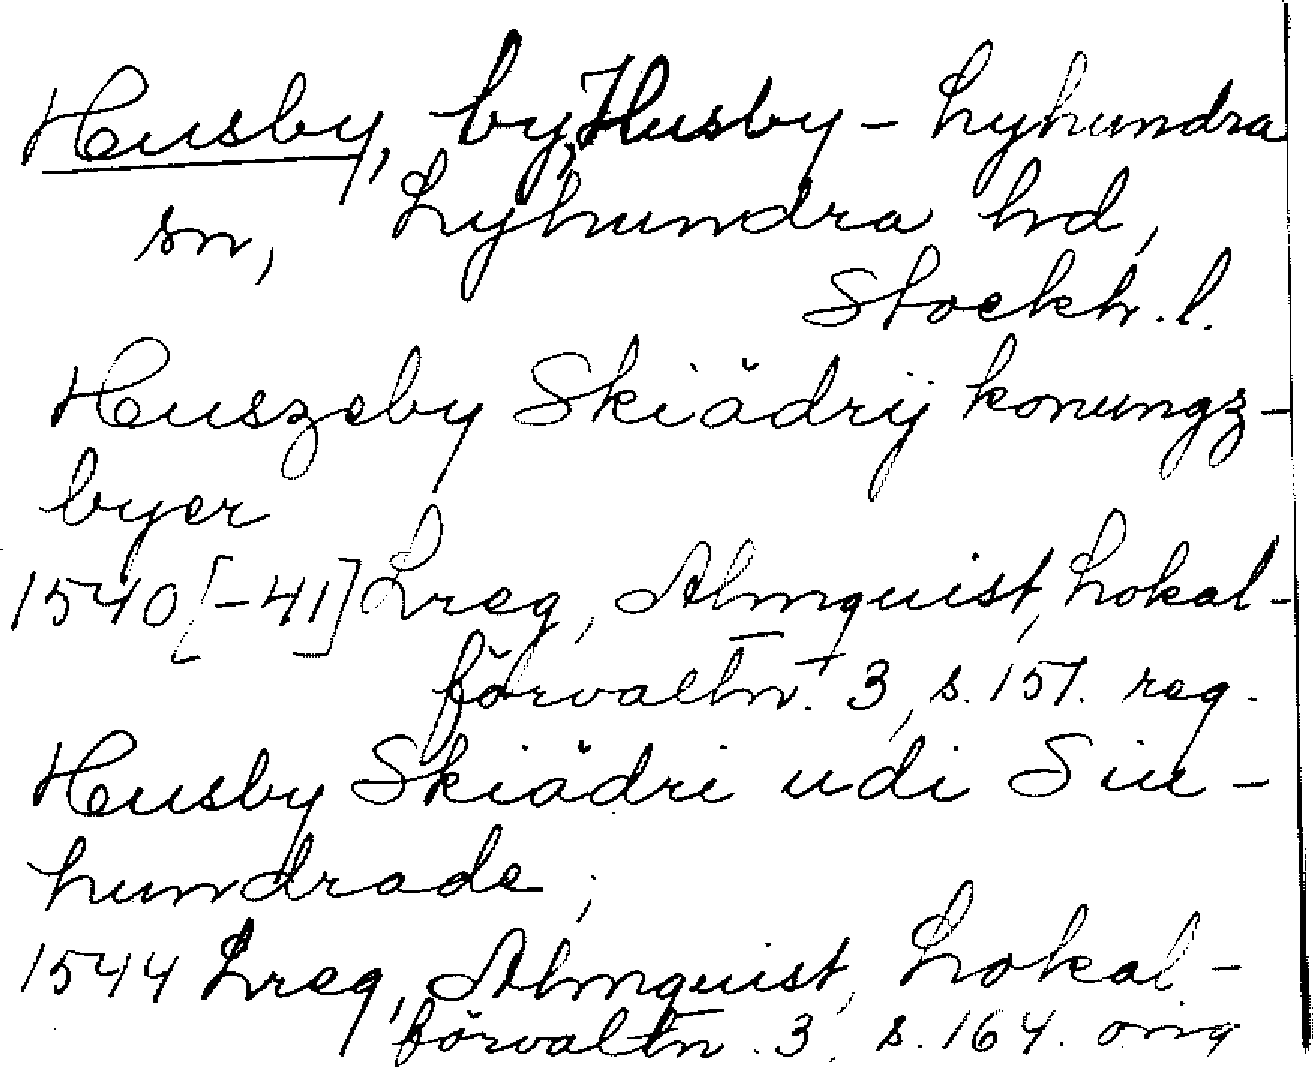 Husby, by, Husby - Lyhundra
sn, Lyhundra hd,
Stockh. l.
Huszeby Skiädrij konungz-
byer
1540 [-41] Lreg, Almquist, Lokal-
förvaltn. 3, s. 157. reg.
Husby Skiädri udi Siu-
hundrade;
1544 Lreg, Almquist, Lokal-
förvaltn. 3. s. 164. orig